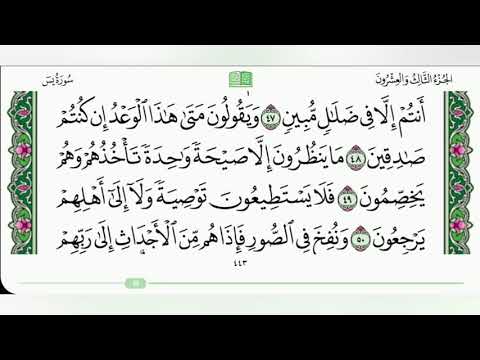 سُورَةُ يسٓ
الجُزءُ الثَّالِثُ وَالعِشْرُونَ
١
أَنتُمْ إِلَّا فِى ضَلَٰلٍ مُّبِينٍ ٤٧ وَيَقُولُونَ مَتَىٰ هَٰذَا ٱلْوَعْدُ إِن كُنتُمْ
صَٰدِقِينَ ٤٨ مَا يَنظُرُونَ إِلَّا صَيْحَةً وَٰحِدَةً تَأْخُذُهُمْ وَهُمْ
يَخِصِّمُونَ ٤٩ فَلَا يَسْتَطِيعُونَ تَوْصِيَةً وَلَآ إِلَىٰٓ أَهْلِهِمْ
يَرْجِعُونَ ٥٠ وَنُفِخَ فِى ٱلصُّورِ فَإِذَا هُم مِّنَ ٱلْأَجْدَاثِ إِلَىٰ رَبِّهِمْ
٤٤٣